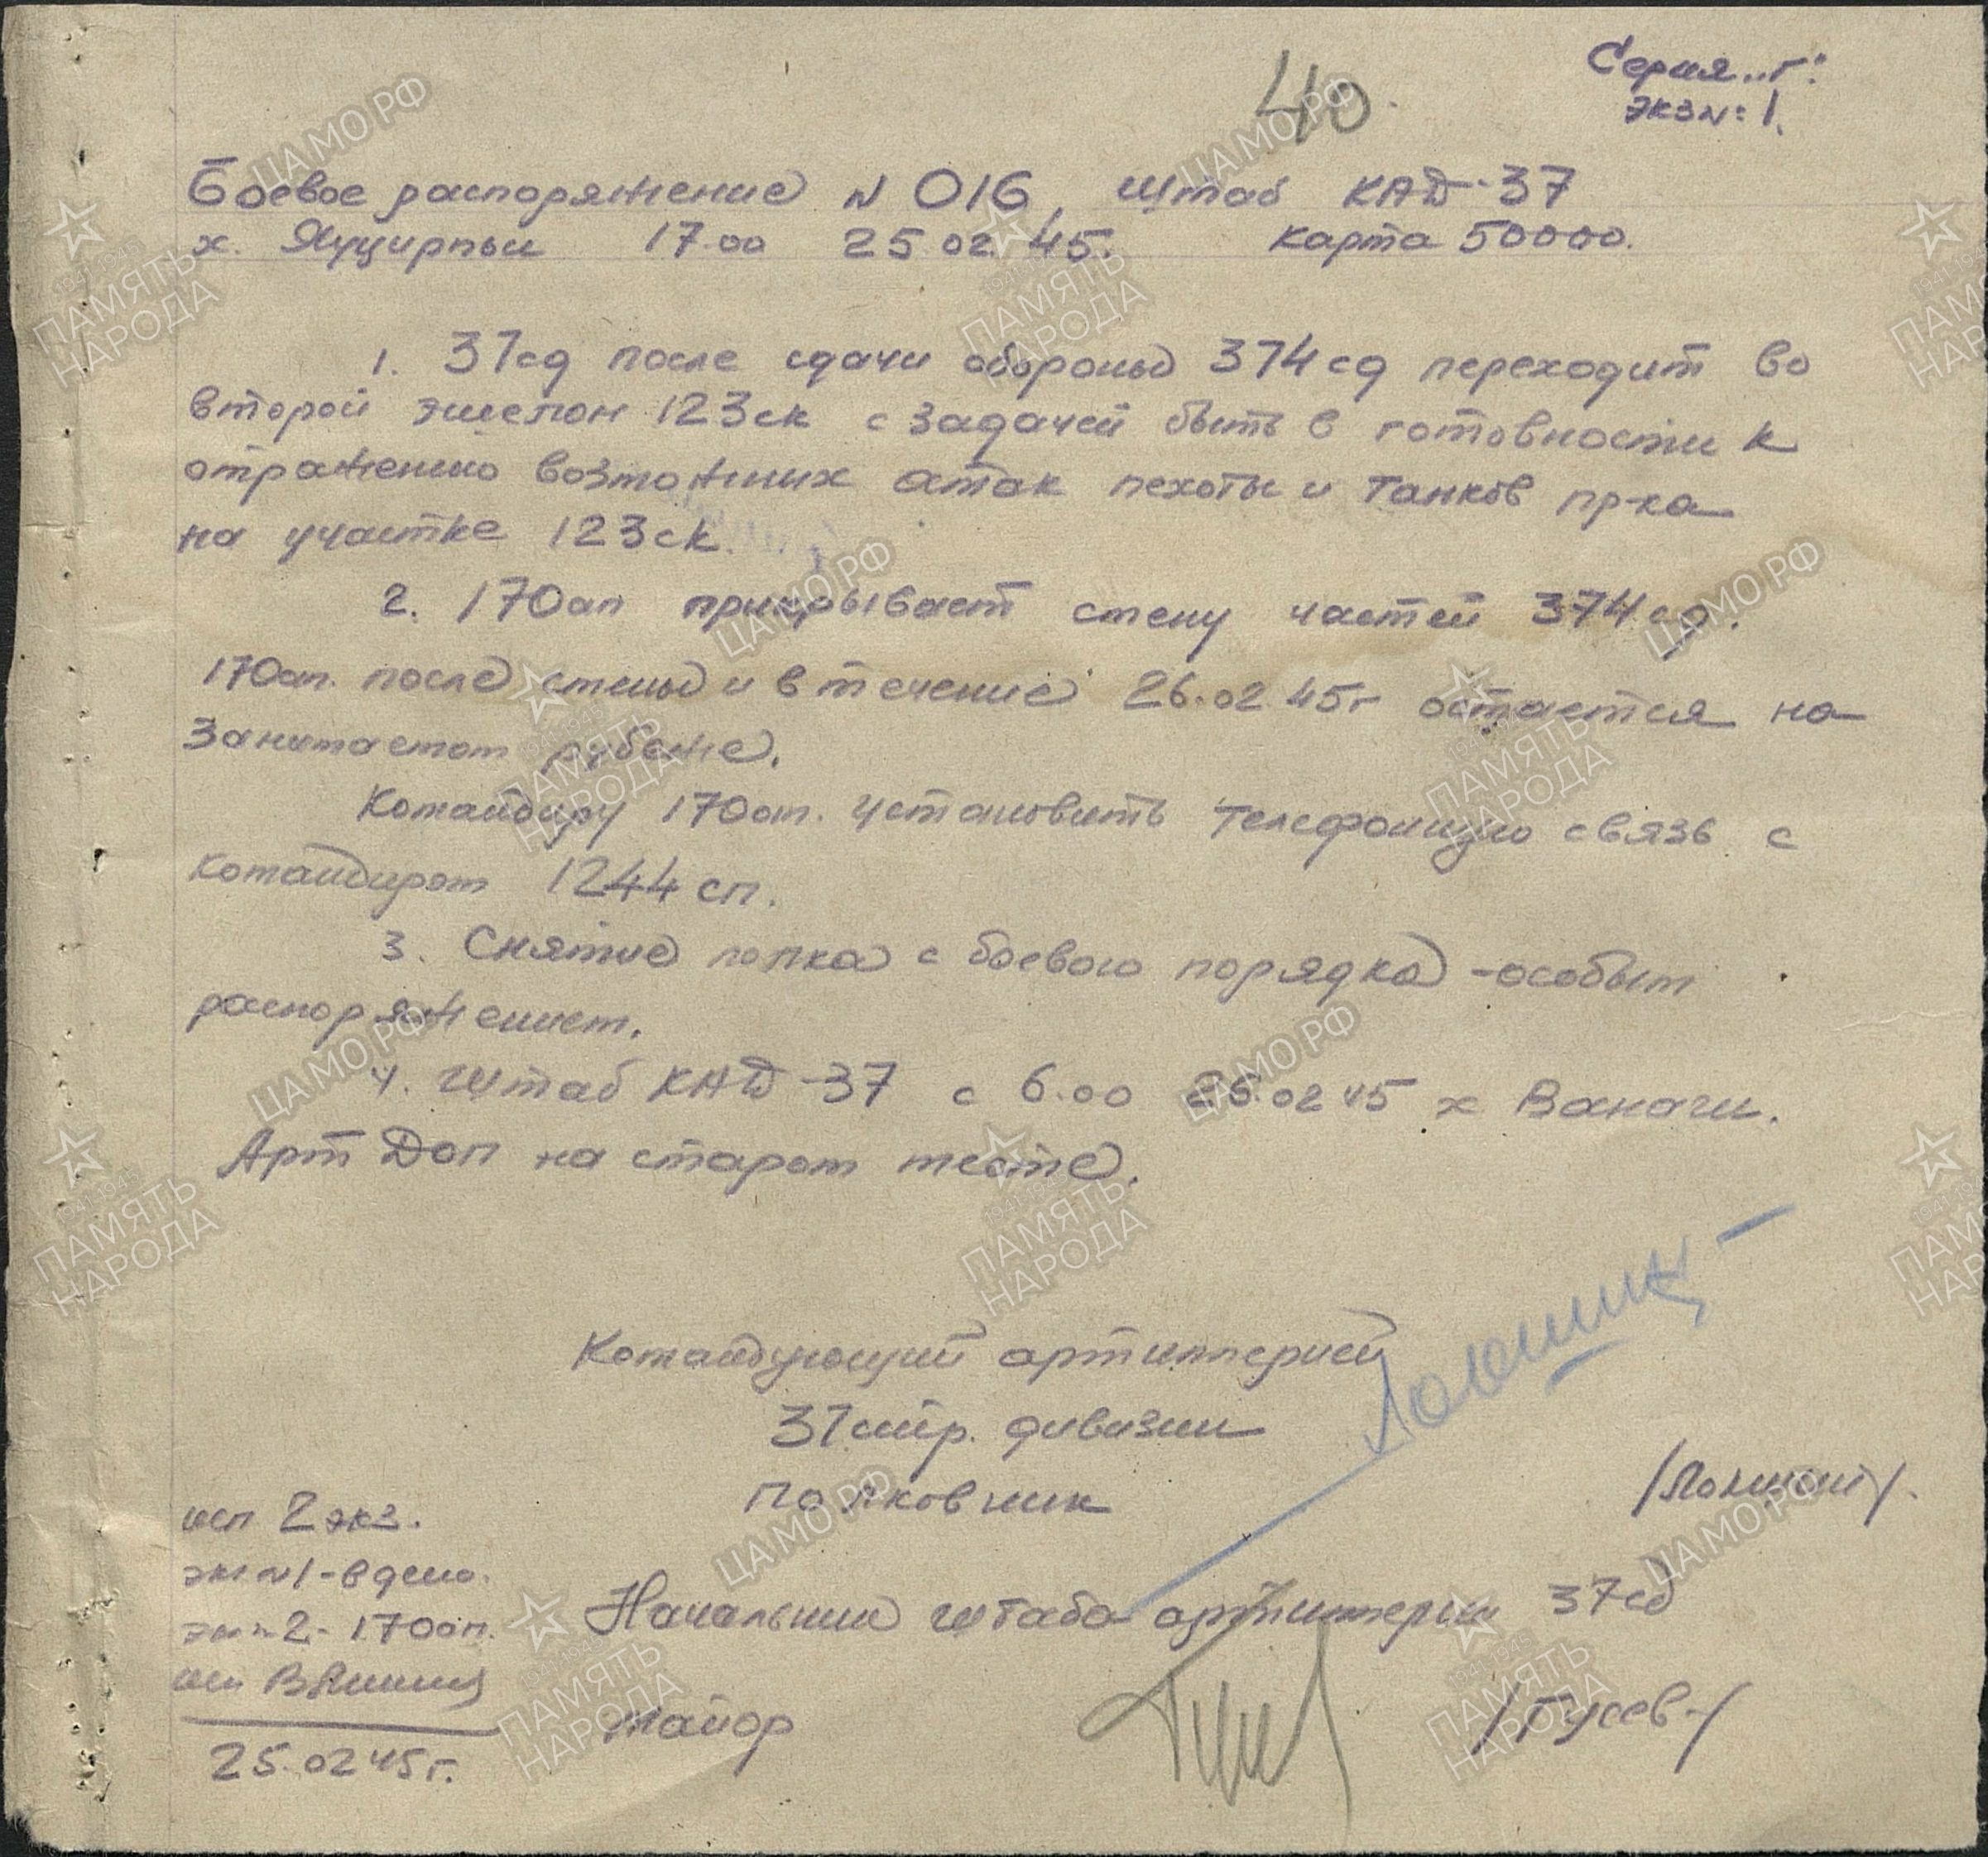 40.
Серия "Г".
экз № 1.
Боевое распоряжение N 016, штаб КАД-37
х. Яуцирпьи 17.00 25.02.45. Карта 50000.
1. 37сд после сдачи обороны 374сд переходит во
второй эшелон 123ск с задачей быть в готовности к
отражению возможных атак пехоты и танков пр-ка
на участке 123ск.
2. 170ап прикрывает смену частей 374сд.
170ап. после смены и в течение 26.02.45г остается на
занимаемом рубеже.
Командиру 170ап. установить телефонную связь с
командиром 1244 сп.
3. Снятие полка с боевого порядка - особым
распоряжением.
4. Штаб КАД-37 с 6.00 26.02.45 х Ваначи.
Арт ДОП на старом месте.
Командующий артиллерией
37 стр. дивизии
полковник
исп 2 экз.
экз №1 - в дело.
экз № 2 - 170ап.
исп
25.02.45г.
Начальник штаба артиллерии 37сд
майор /Гусев/
ЦАМО РФ
1941-1945
ПАМЯТЬ
НАРОДА